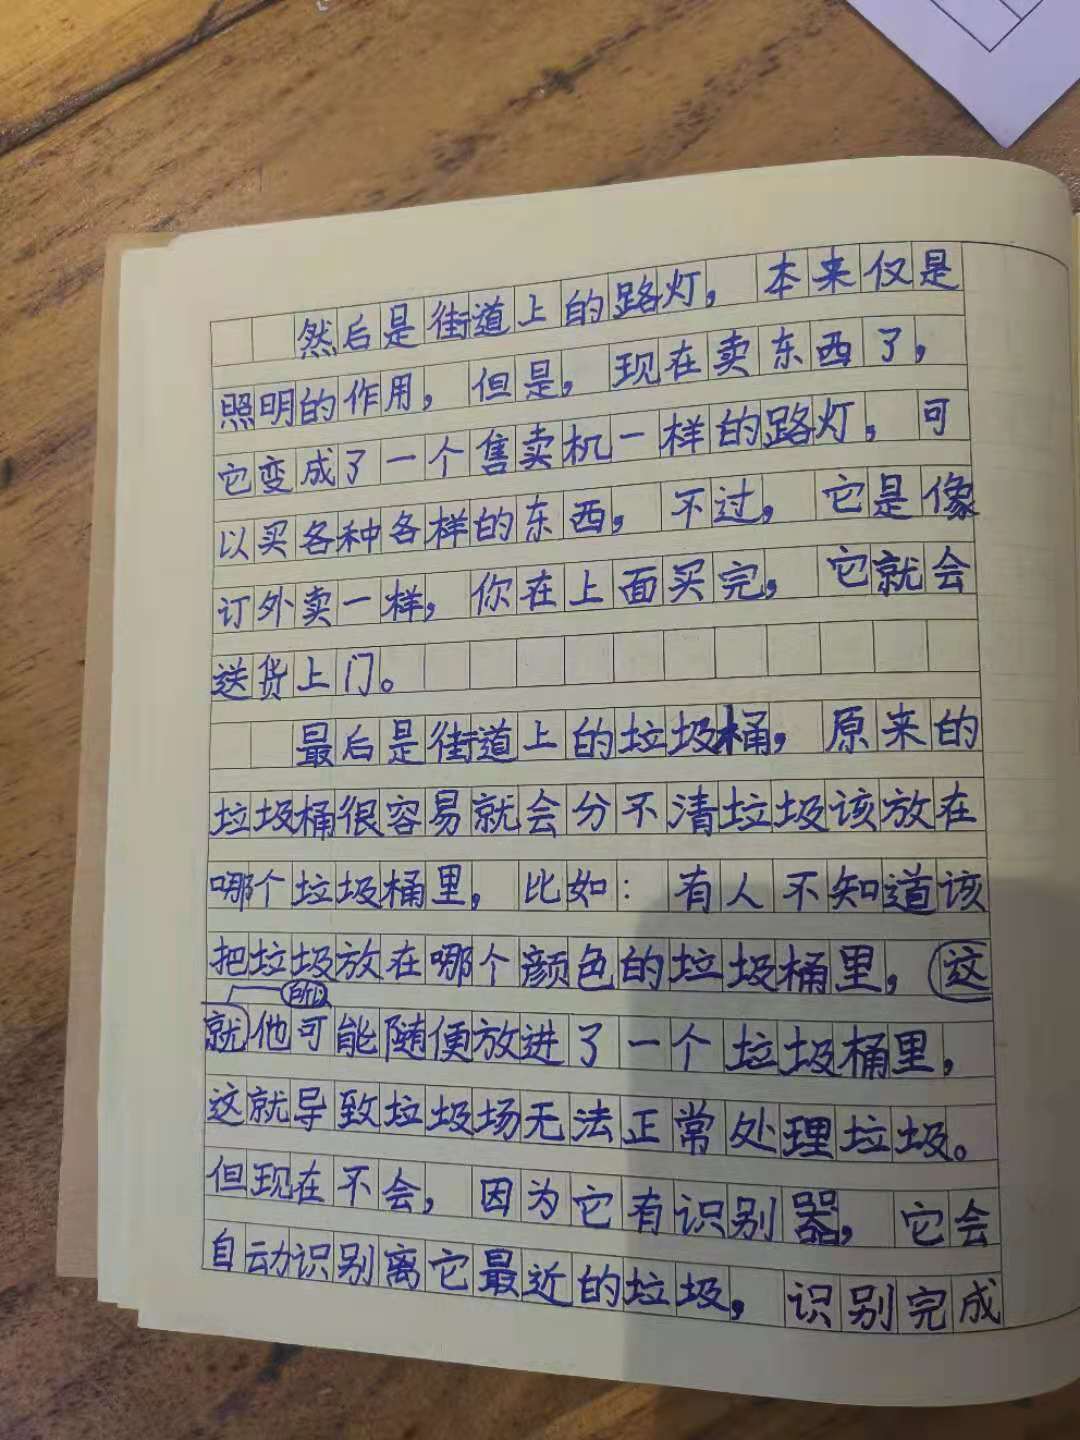 然后是街道上的路灯，本来仅是
照明的作用，但是，现在卖东西了，
它变成了一个售卖机一样的路灯，可
以买各种各样的东西，不过，它是像
订外卖一样，你在上面买完，它就会
送货上门。
最后是街道上的垃圾桶，原来的
垃圾桶很容易就会分不清垃圾该放在
哪个垃圾桶里，比如：有人不知道该
把垃圾放在哪个颜色的垃圾桶里，这
所以
就他可能随便放进了一个垃圾桶里，
这就导致垃圾场无法正常处理垃圾。
但现在不会，因为它有识别器，它会
自动识别离它最近的垃圾，识别完成